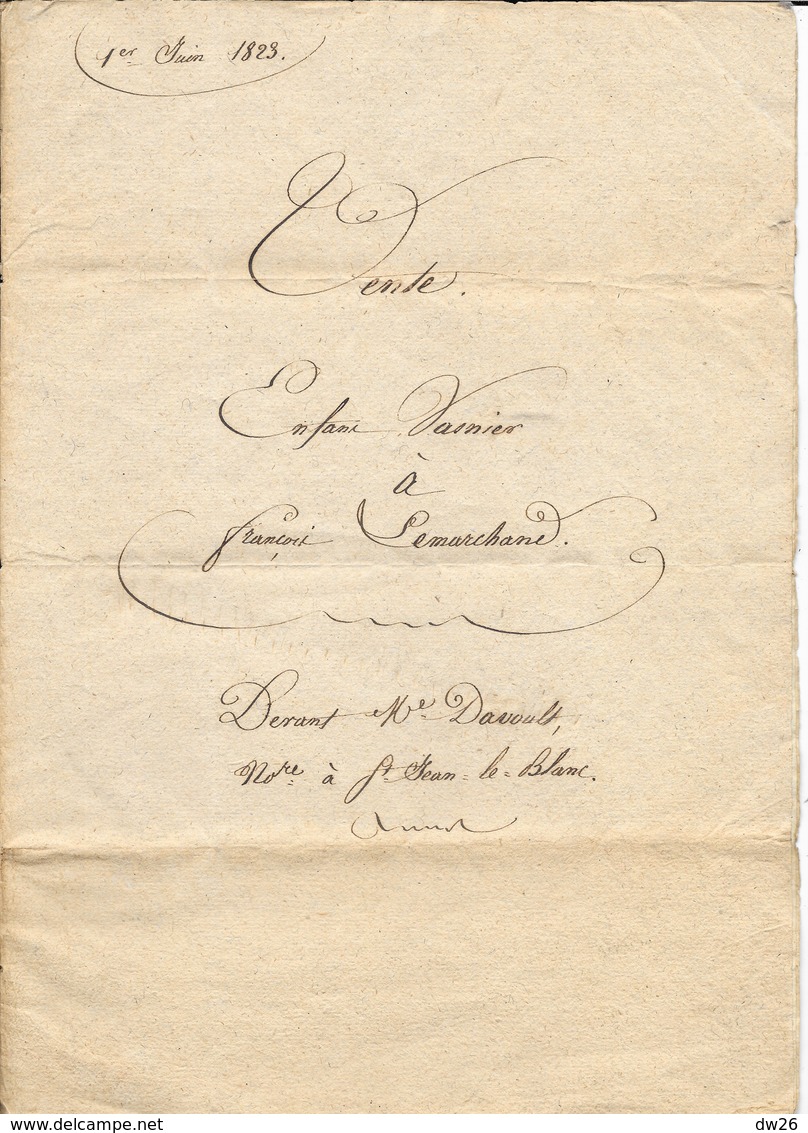 1er Juin 1823.
Vente.
Enfans Vasnier
à
françois Lemarchand.
Devant Me Davoult,
Nore à St Jean-le-Blanc.
dw26